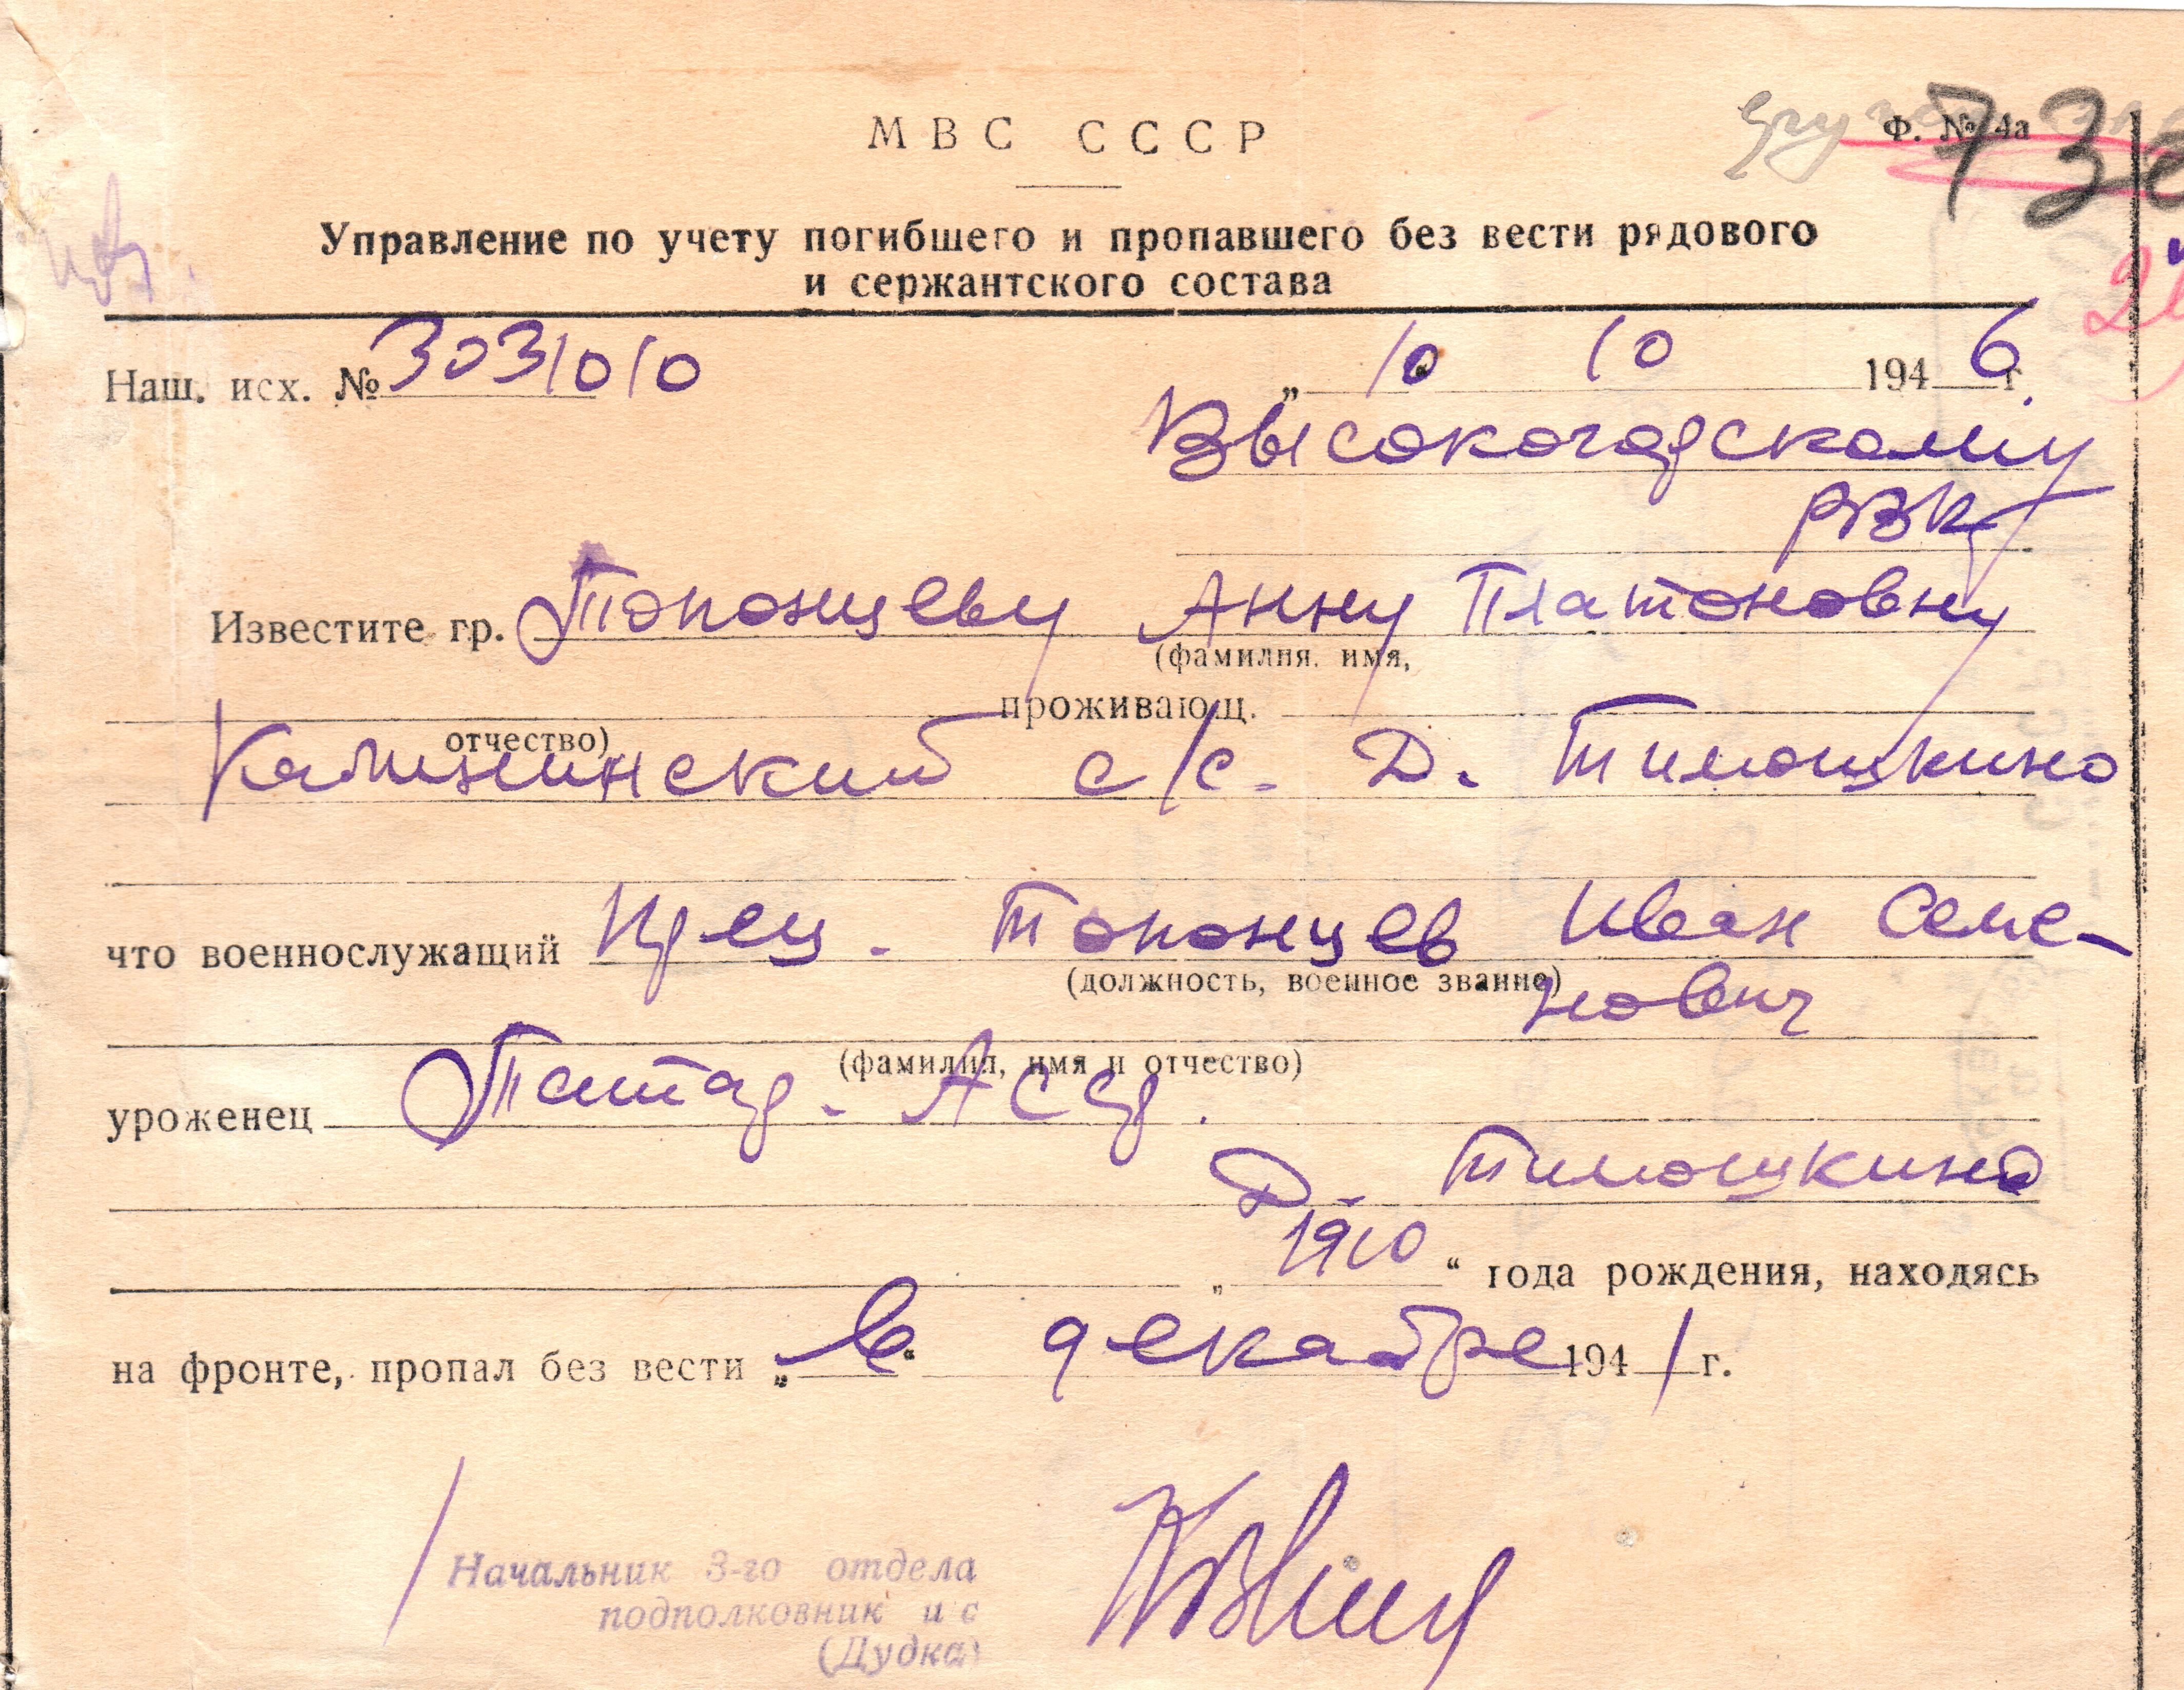 МВС СССР
Ф. № 4а
73
Управление по учету погибшего и пропавшего без вести рядового
и сержантского состава
Наш. исх. № 3031010
„ 10 10 1946 г.
Высокогорскому
РВК
Известите гр. Топонцеву Анну Платоновну
(фамилия, имя,
проживающ.
отчество)
Калининский с/с. Д. Тимошкино
что военнослужащий Кр-ец. Топонцев Иван Семе-
(должность, военное звание)
нович
(фамилия, имя и отчество)
уроженец Татар. АССР.
Д. Тимошкино
„ 1910 “ года рождения, находясь
на фронте, пропал без вести „ в “ декабре 1941 г.
Начальник 3-го отдела
подполковник и с
(Дудка)